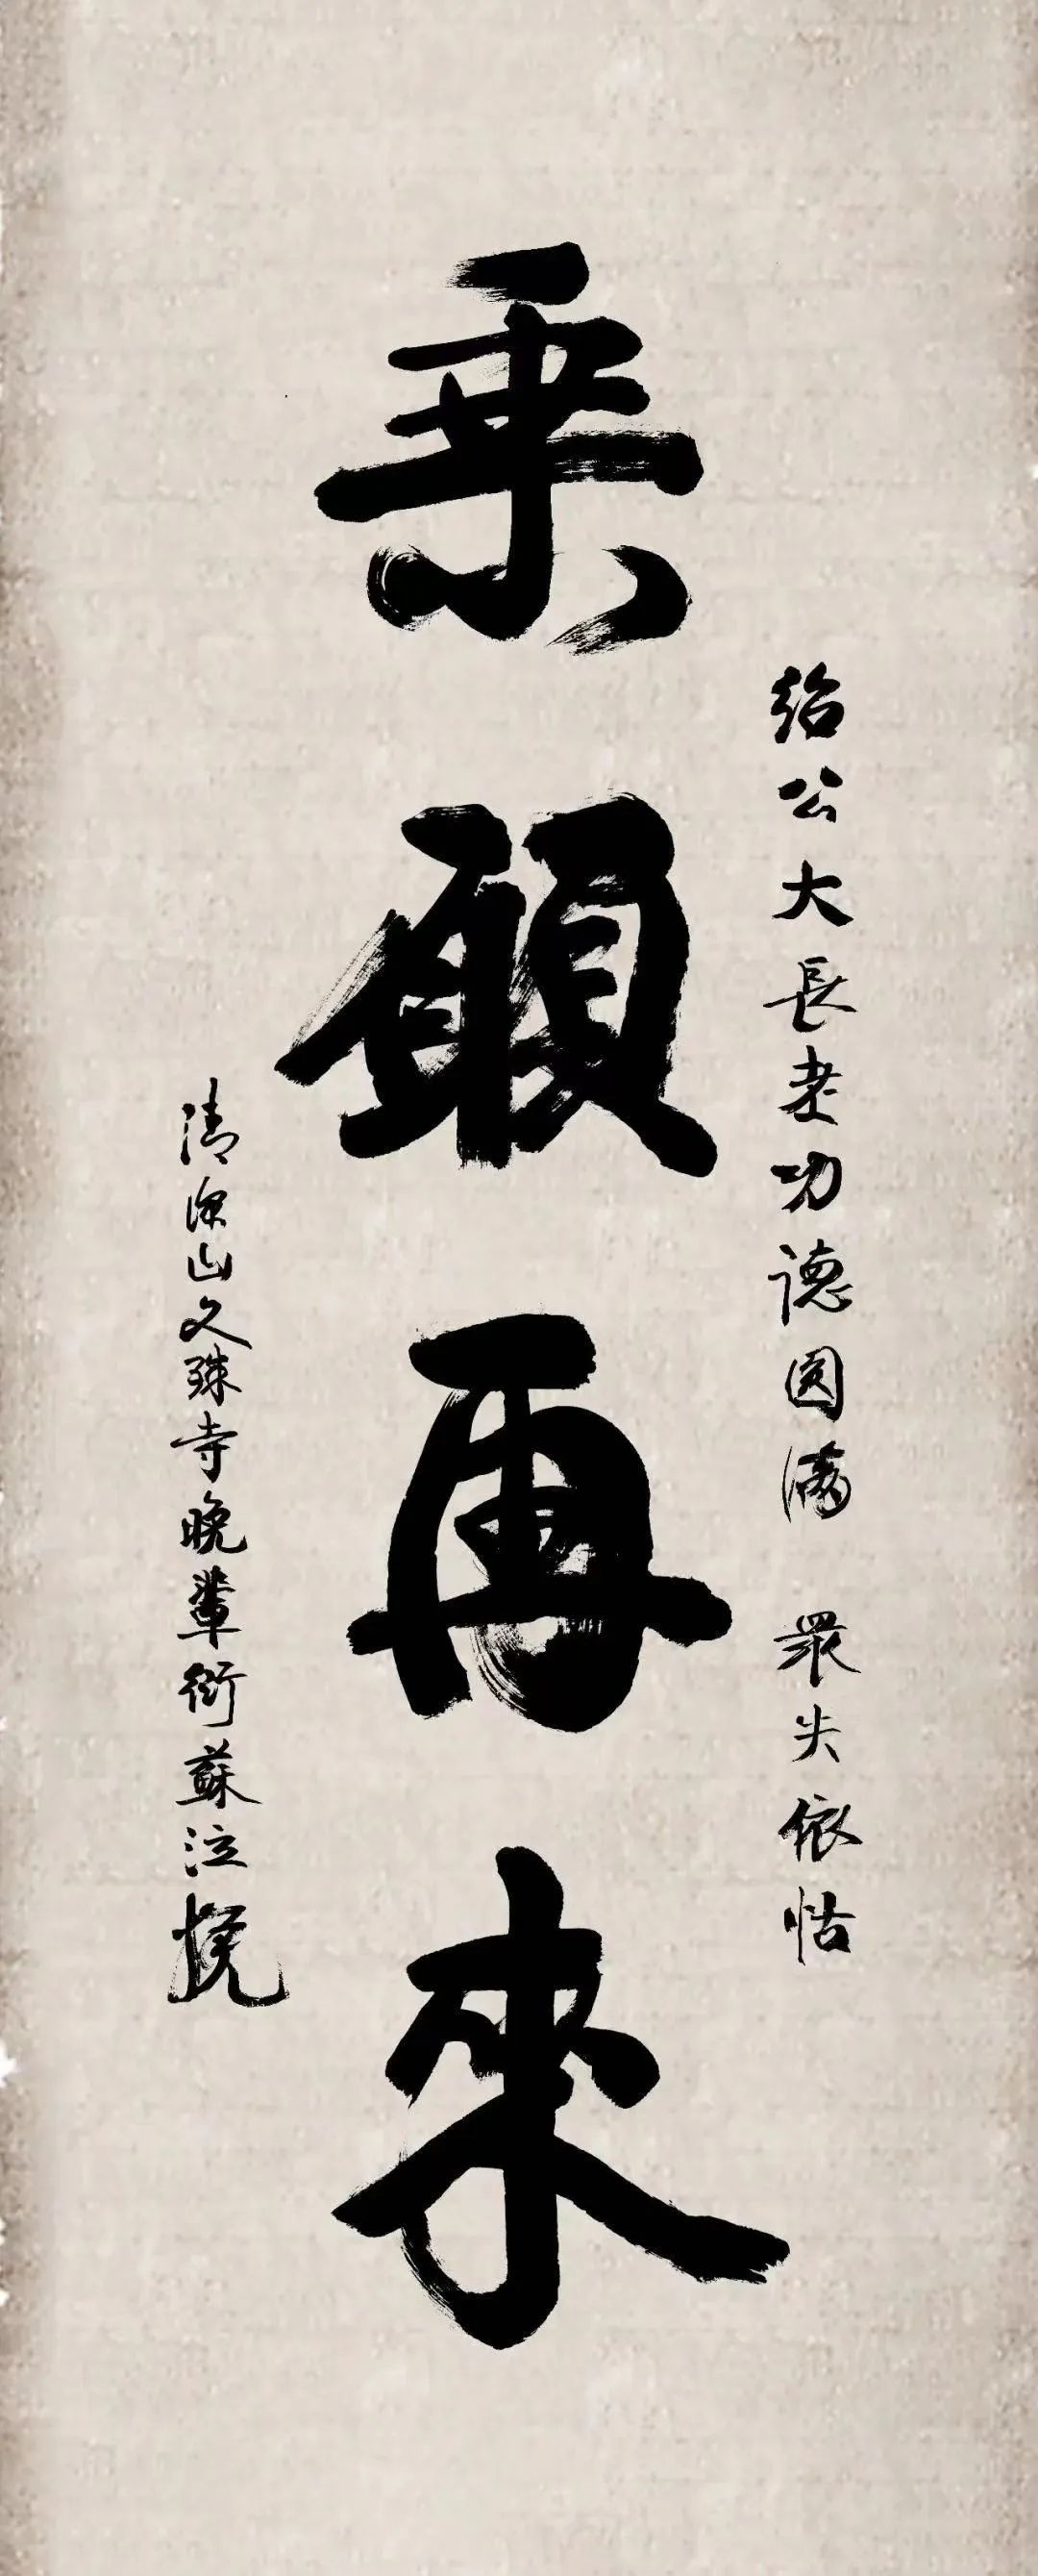 紹公大長老功德圓滿 眾失依怙
乘願再來
清凉山文殊寺晚輩衍蘇泣挽